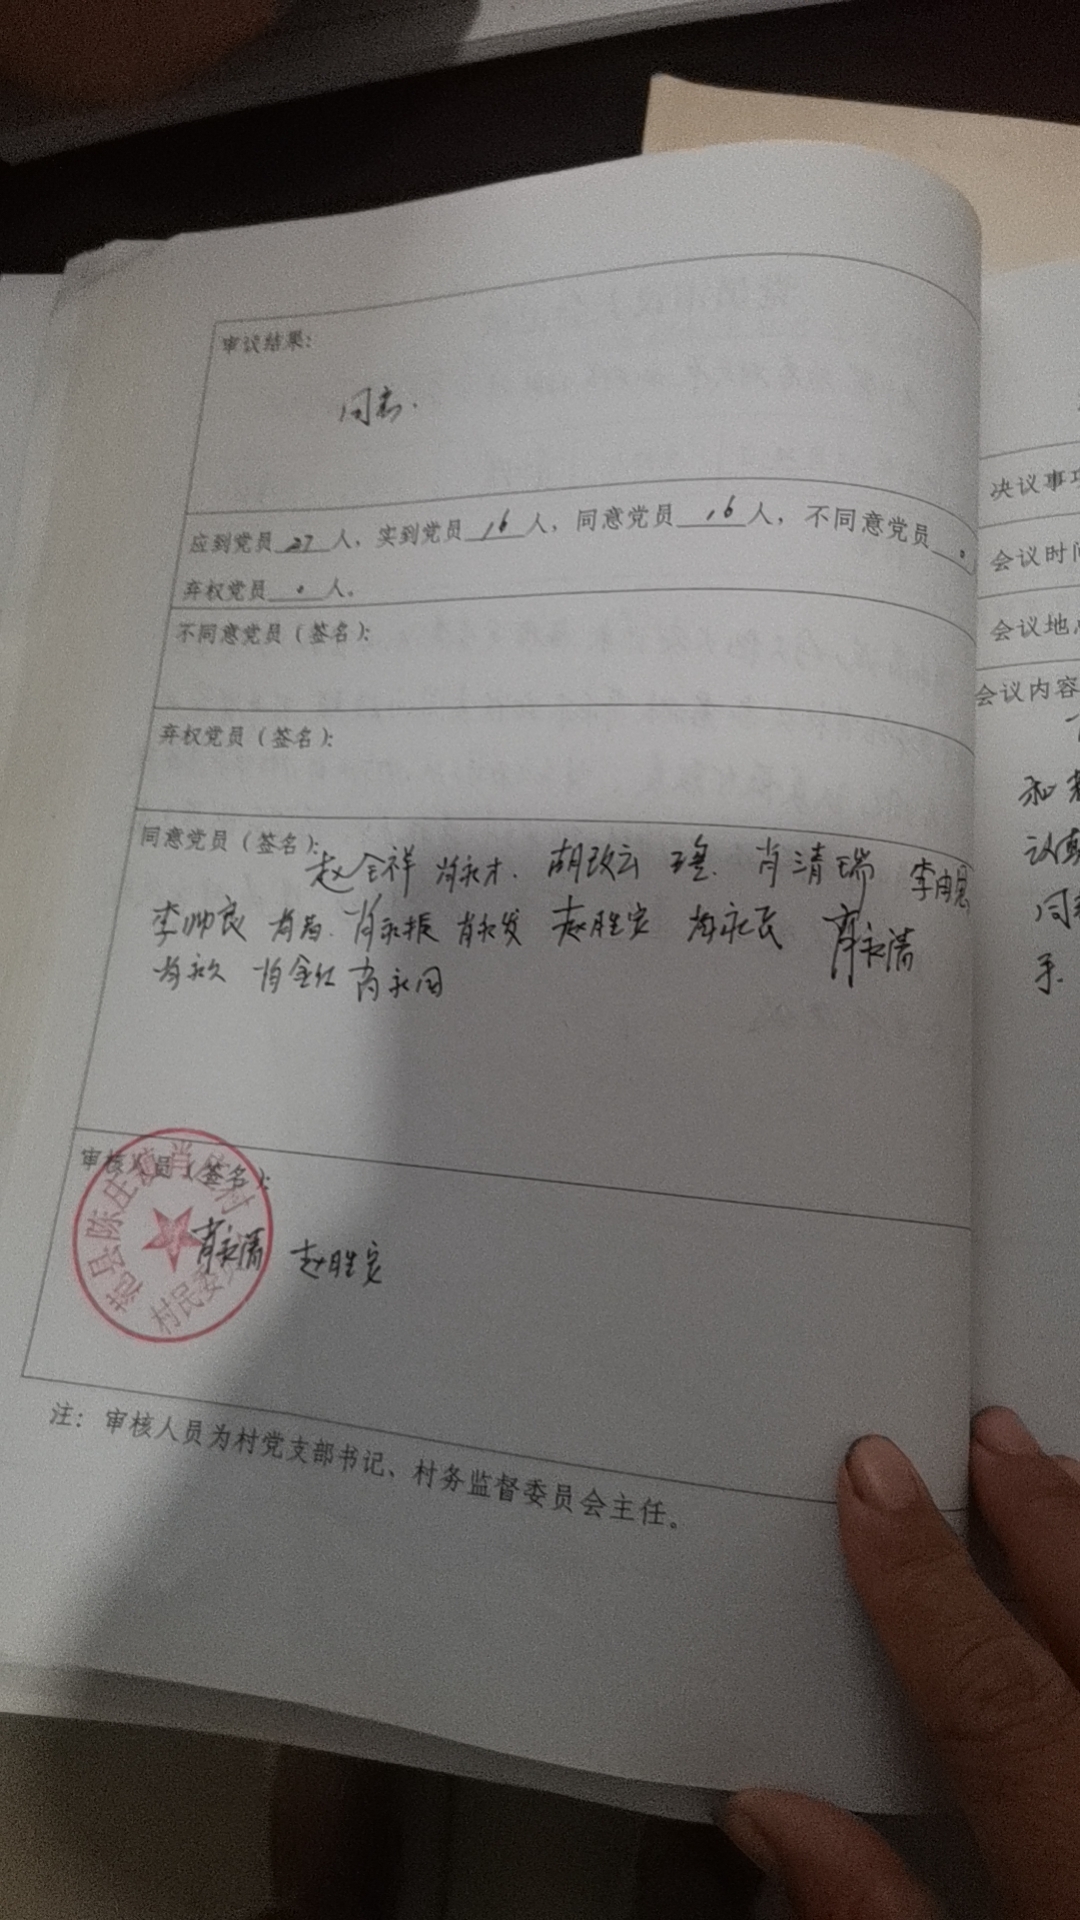 审议结果:
同意.
应到党员 27 人，实到党员 16 人，同意党员 16 人，不同意党员 0
弃权党员 0 人。
不同意党员（签名）:
弃权党员（签名）:
同意党员（签名）:
赵全祥 肖永才. 胡改云 肖清瑞
李帅良 肖永振 肖永发 赵胜安 肖永民 肖永清
肖永久 肖金红 肖永国
审核人员（签名）:
范县陈庄镇肖庄村
村民委员
肖永清 赵胜安
注：审核人员为村党支部书记、村务监督委员会主任。
决议事项
会议时间
会议地点
会议内容
同
手.